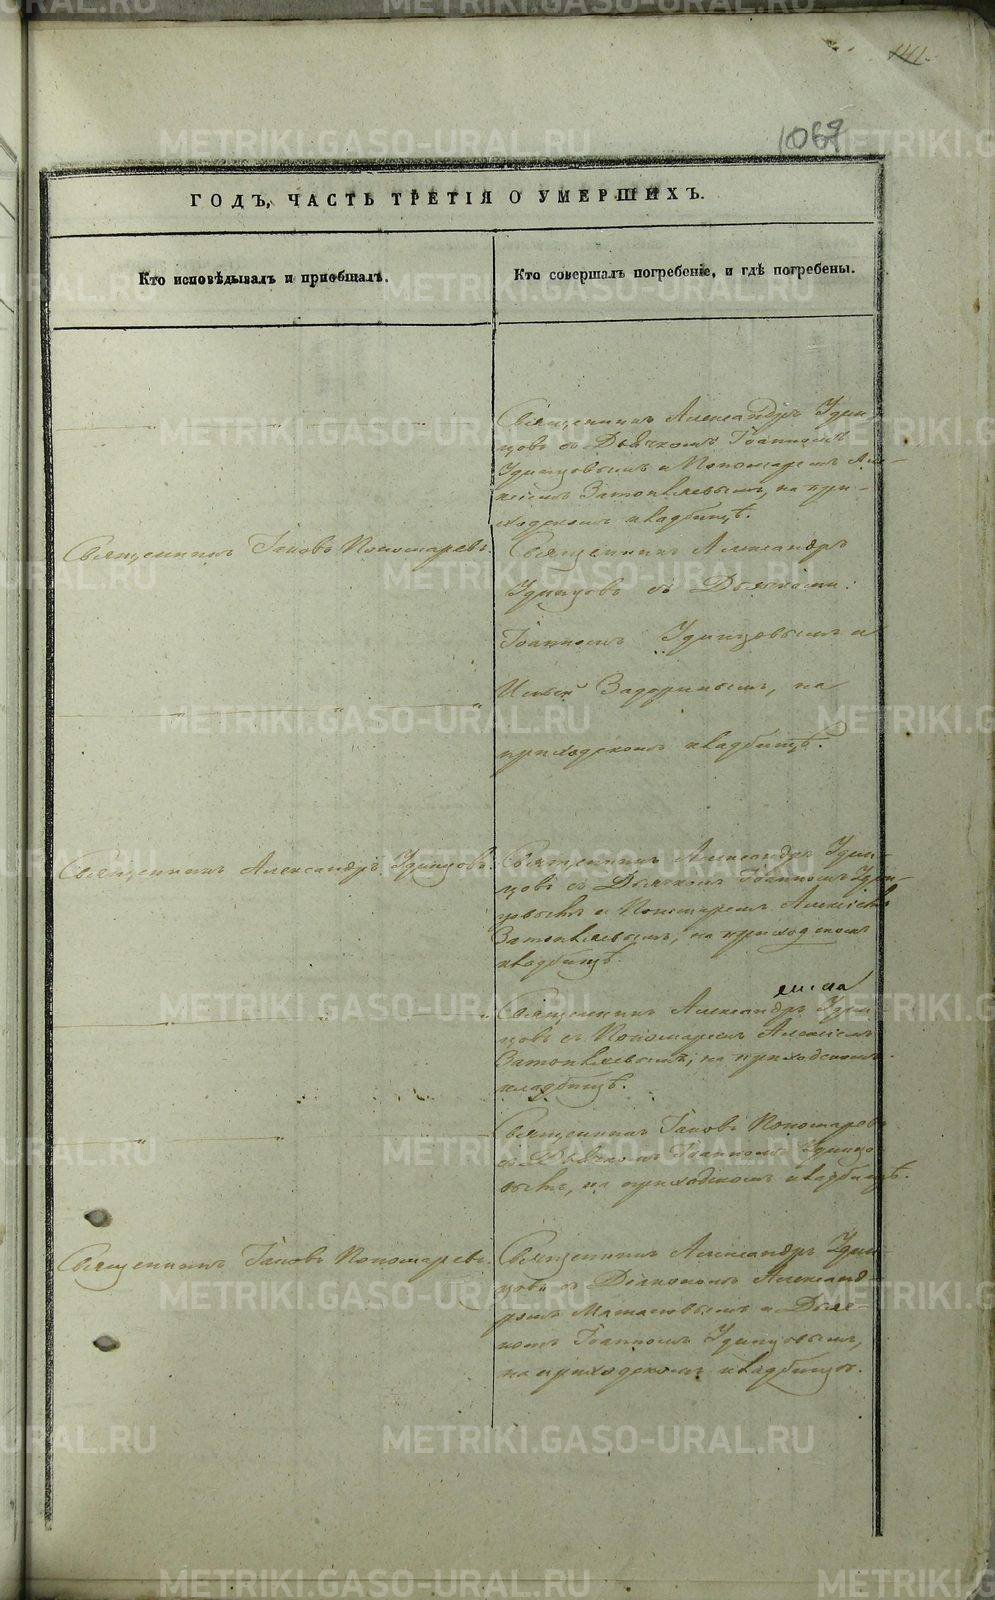 141.
1067
ГОДЪ, ЧАСТЬ ТРЕТІЯ О УМЕРШИХЪ.
Кто исповѣдывалъ и пріобщалъ.
Кто совершалъ погребеніе, и гдѣ погребены.
Священникъ Александръ Удин-
цовъ съ Дьячкомъ Іоанномъ
Удинцовымъ и Пономаремъ Але-
ксіемъ Затопляевымъ, на при-
ходскомъ кладбищѣ.
Священникъ Іаковъ Пономаревъ.
Священникъ Александръ
Удинцовъ съ Дьячками:
Іоанномъ Удинцовымъ и
Ильей Задоринымъ, на
приходскомъ кладбищѣ.
Священникъ Александръ Удинцовъ.
Священникъ Александръ Удин-
цовъ съ Дьячкомъ Іоанномъ Удин-
цовымъ и Пономаремъ Алексіемъ
Затопляевымъ, на приходскомъ
кладбищѣ.
Священникъ Александръ Удин
цовъ съ Пономаремъ Алексіемъ
Затопляевымъ, на приходскомъ
кладбищѣ.
Священникъ Іаковъ Пономаревъ
съ Дьячкомъ Іоанномъ Удинцо
вымъ, на приходскомъ кладбищѣ.
Священникъ Іаковъ Пономаревъ.
Священникъ Александръ Удин
цовъ съ Діакономъ Александ-
ромъ и Дьяч-
комъ Іоанномъ Удинцовымъ,
на приходскомъ кладбищѣ.
METRIKI.GASO-URAL.RU